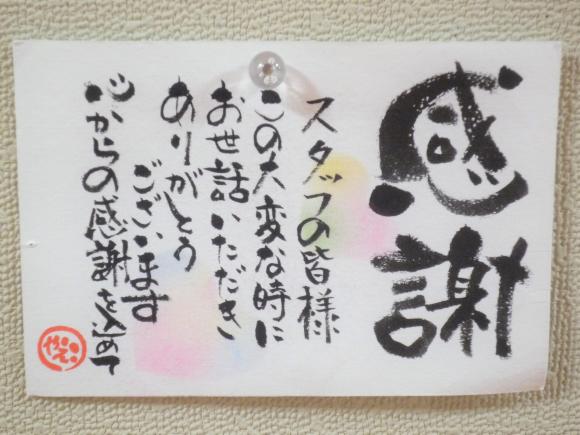 感謝
スタッフの皆様
この大変な時に
お世話いただき
ありがとう
ございます
心からの感謝を込めて